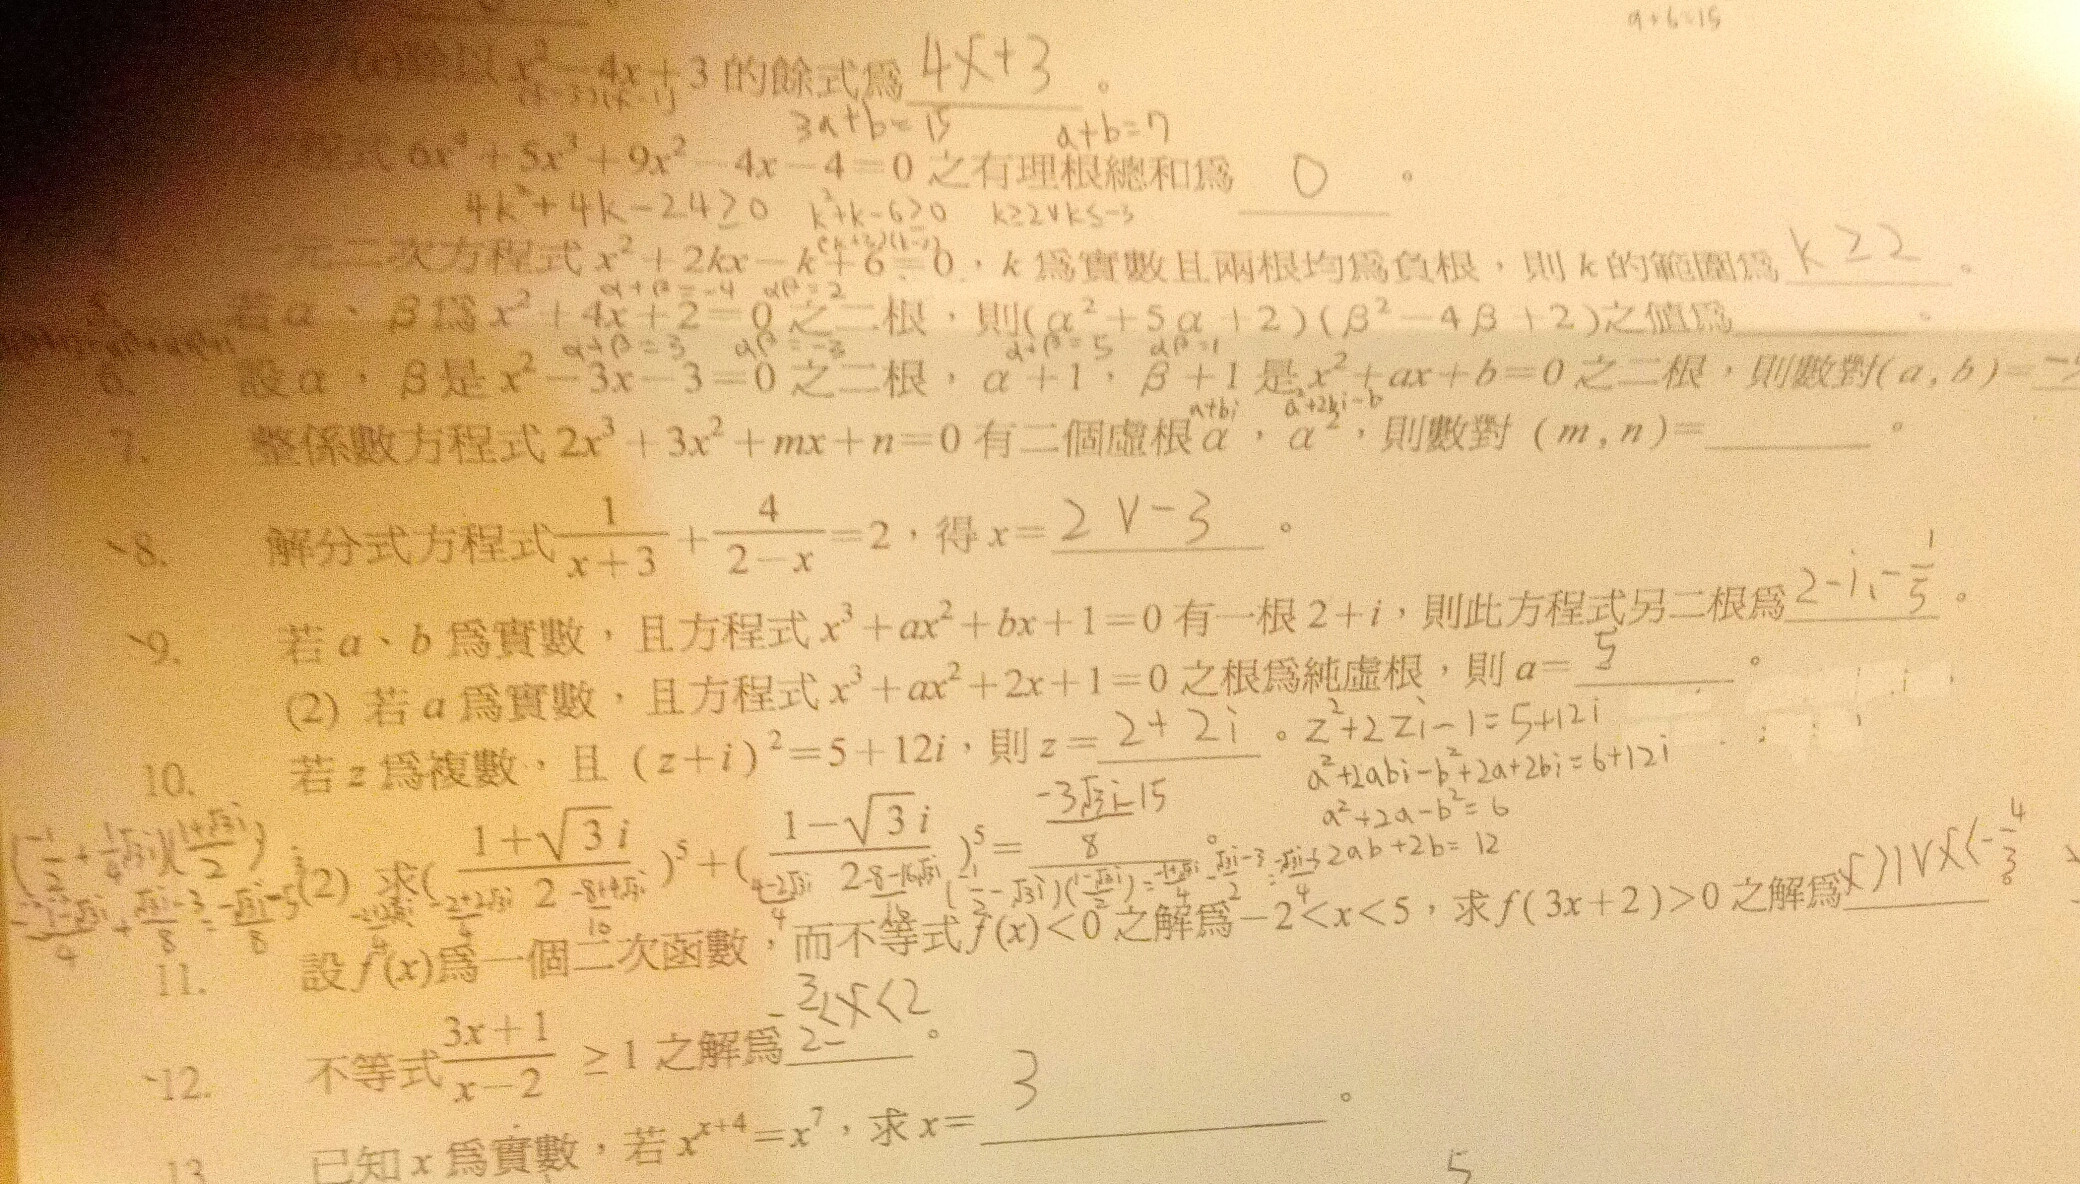 a+b=15
x²-4x+3 的餘式為 4x+3 。
3a+b=15 a+b=7
6x⁴+5x³+9x²-4x-4=0 之有理根總和為 0 。
4k²+4k-24≥0 k²+k-6≥0 k≥2∨k≤-3
一元二次方程式 x²+2kx-k+6=0,k 為實數且兩根均為負根,則 k 的範圍為 k≥2 。
α+β=-4 αβ=2
5. 若α、β為 x²+4x+2=0 之二根,則(α²+5α+2)(β²-4β+2)之值為 。
α+β=3 αβ=-3 α+β=5 αβ=1
6. 設α,β是 x²-3x-3=0 之二根,α+1,β+1 是 x²+ax+b=0 之二根,則數對(a,b)=
a+bi
7. 整係數方程式 2x³+3x²+mx+n=0 有二個虛根α,α²,則數對 (m,n)= 。
8. 解分式方程式 1/(x+3) + 4/(2-x) =2,得 x= 2∨-3 。
9. 若 a、b 為實數,且方程式 x³+ax²+bx+1=0 有一根 2+i,則此方程式另二根為 2-i、-1/5 。
(2) 若 a 為實數,且方程式 x³+ax²+2x+1=0 之根為純虛根,則 a= 5 。
10. 若 z 為複數,且 (z+i)²=5+12i,則 z= 2+2i 。 z²+2zi-1=5+12i
a²+2abi-b²+2a+2bi=6+12i
a²+2a-b²=6
2ab+2b=12
(2) 求( (1+√3i)/2 )⁵+( (1-√3i)/2 )⁵= (-3√3i-15)/8 。
11. 設 f(x)為一個二次函數,而不等式 f(x)<0 之解為 -2<x<5,求 f(3x+2)>0 之解為 x>1∨x<-4/3 。
12. 不等式 (3x+1)/(x-2) ≥1 之解為 -3/2<x<2 。
13. 已知 x 為實數,若 x^(x+4)=x⁷,求 x= 3 。
5